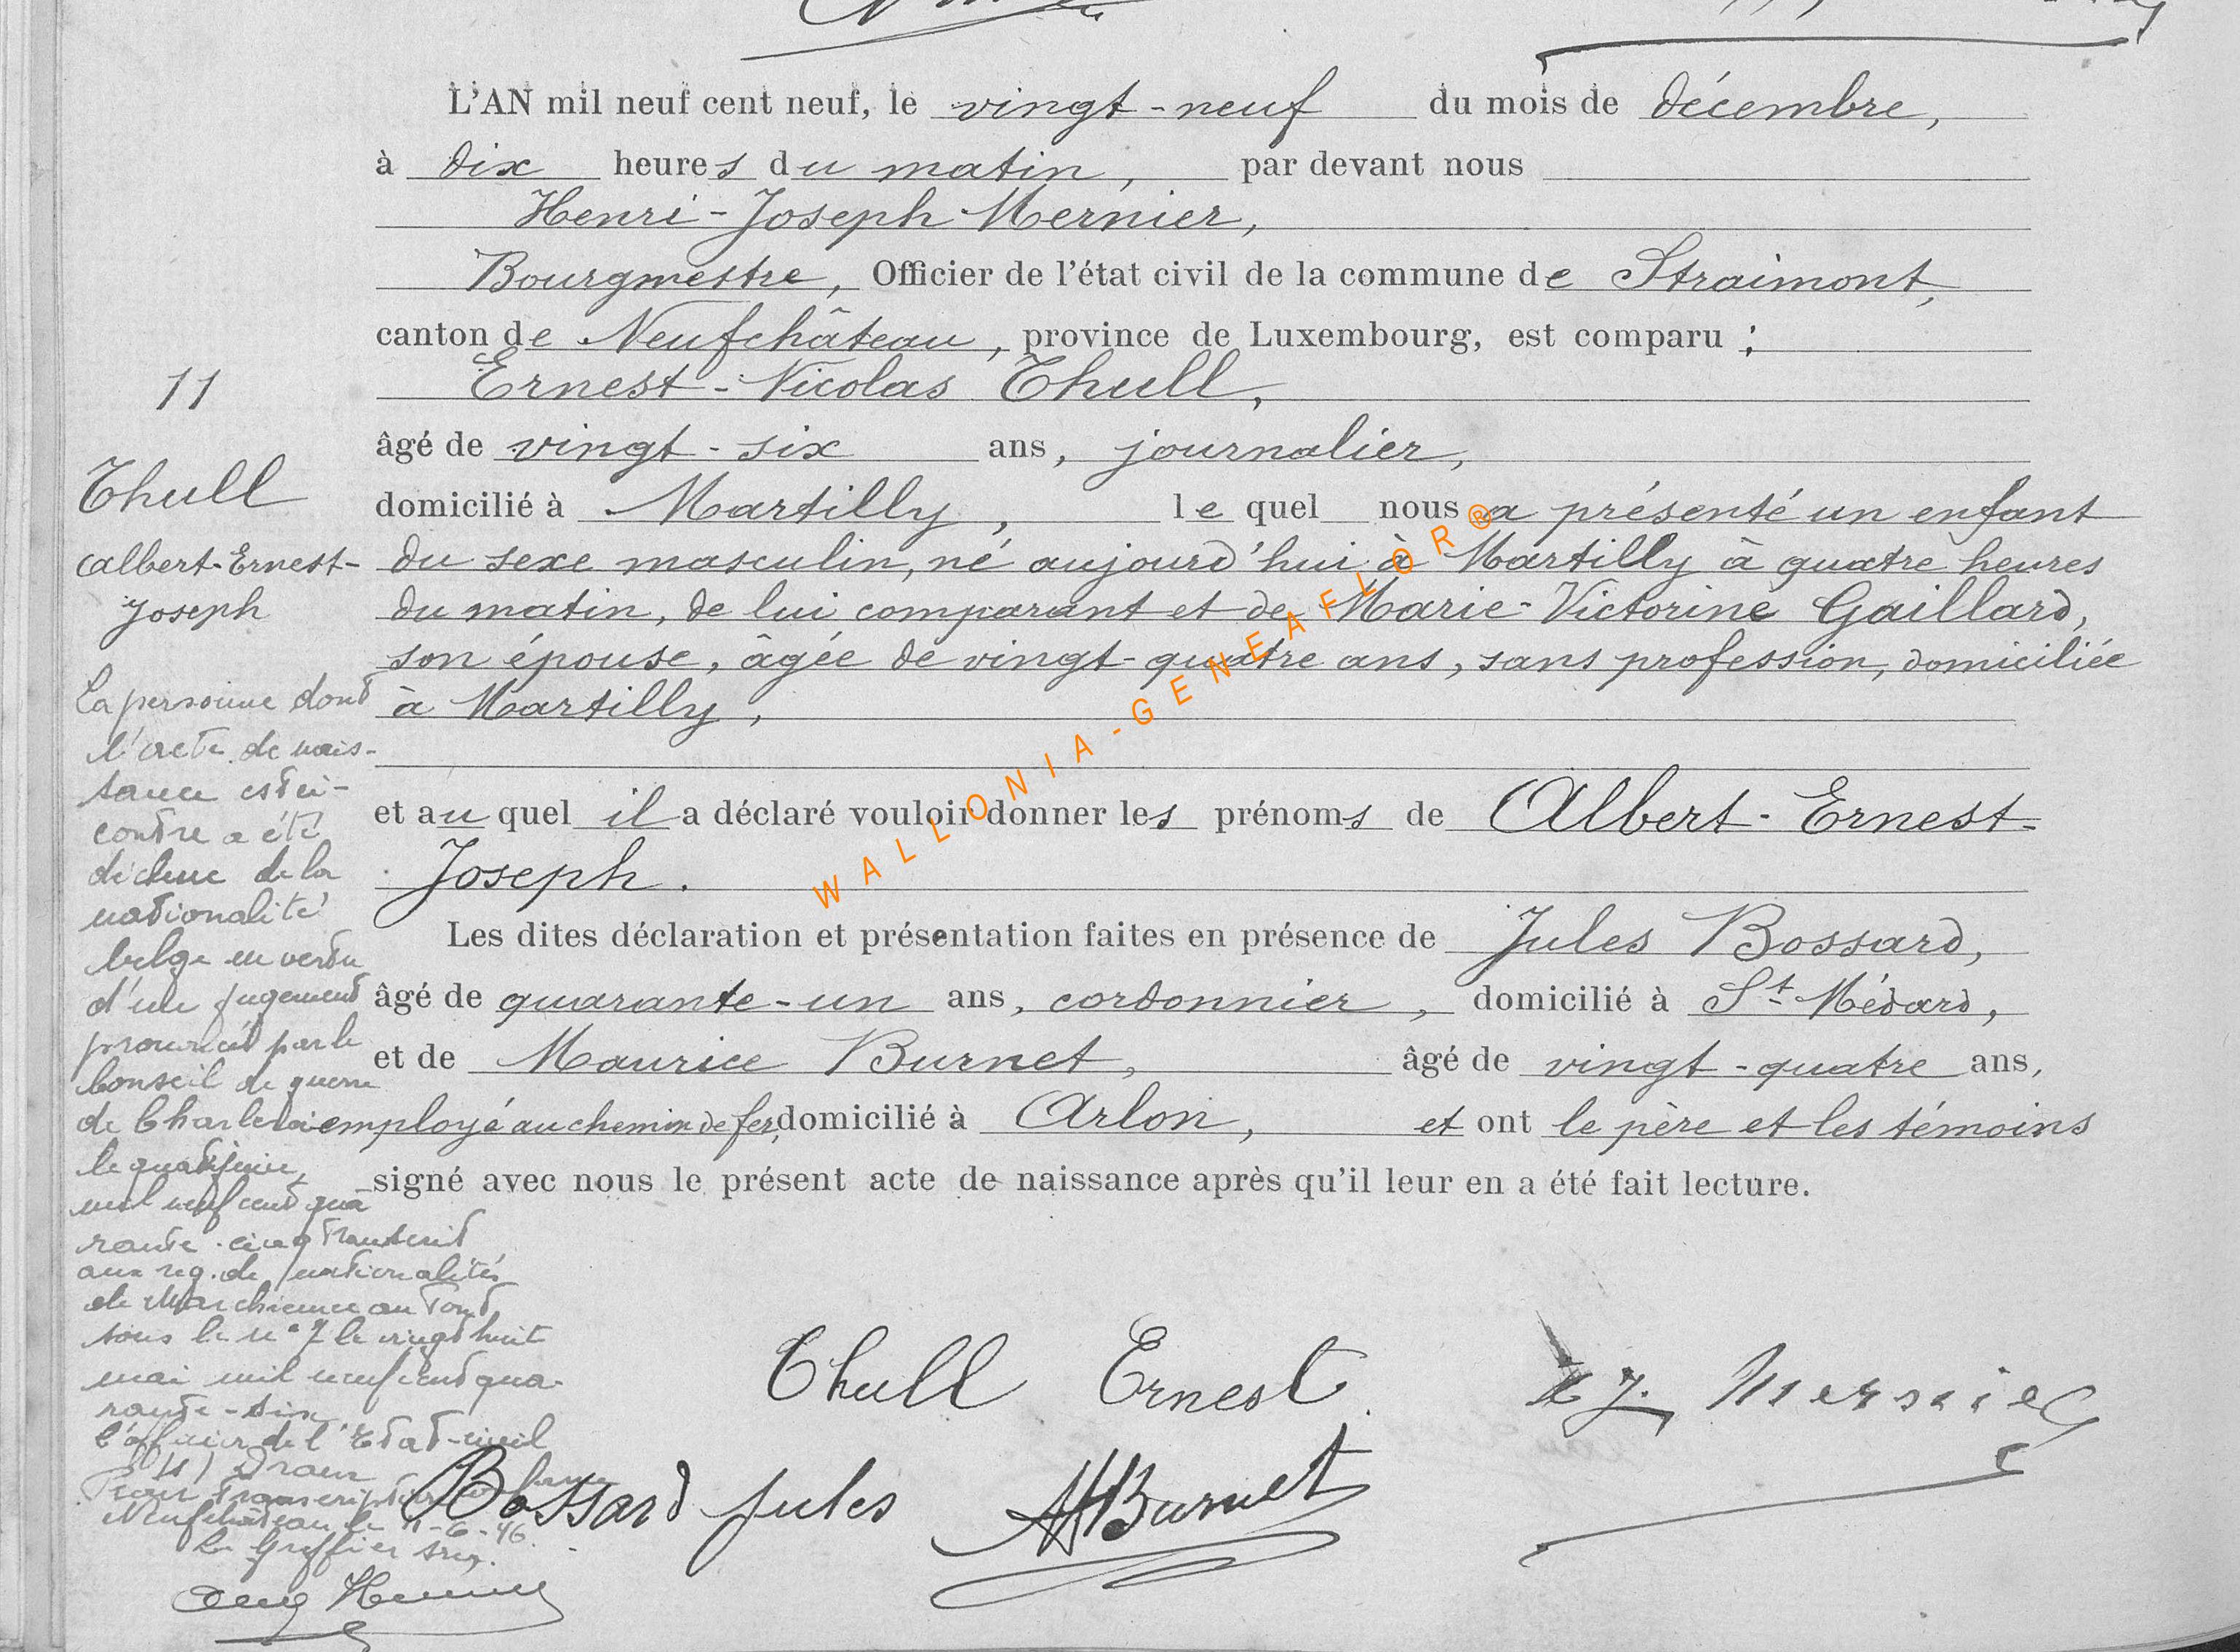 L'AN mil neuf cent neuf, le vingt-neuf du mois de décembre,
à dix heures du matin, par devant nous
Henri-Joseph Mernier,
Bourgmestre, Officier de l'état civil de la commune de Straimont,
canton de Neufchâteau, province de Luxembourg, est comparu :
Ernest-Nicolas Thull,
âgé de vingt-six ans, journalier,
domicilié à Martilly, le quel nous a présenté un enfant
du sexe masculin, né aujourd'hui à Martilly à quatre heures
du matin, de lui comparant et de Marie-Victorine Gaillard,
son épouse, âgée de vingt-quatre ans, sans profession, domiciliée
à Martilly,
et au quel il a déclaré vouloir donner les prénoms de Albert-Ernest-
Joseph.
Les dites déclaration et présentation faites en présence de Jules Bossard,
âgé de quarante-un ans, cordonnier, domicilié à St Médard,
et de Maurice Burnet, âgé de vingt-quatre ans,
employé au chemin de fer, domicilié à Arlon, et ont le père et les témoins
signé avec nous le présent acte de naissance après qu'il leur en a été fait lecture.
Thull Ernest
H J. Mernier
Bossard jules
Burnet
11
Thull
Albert-Ernest-
Joseph
La personne dont
l'acte de nais-
sance est ci-
contre a été
déchue de la
nationalité
belge en vertu
d'un jugement
prononcé par le
Conseil de guerre
de Charleroi
le quatre juin
mil neuf cent qua
rante-cinq transcrit
aux reg. de nationalités
de Marchienne au Pont
sous le n° 7 le vingt huit
mai mil neuf cent qua-
rante-six
l'officier de l'Etat-civil
(s)
Pour transcription conforme
Neufchâteau, le 11-6-46.
Le Greffier
WALLONIA-GENEAFLOR®